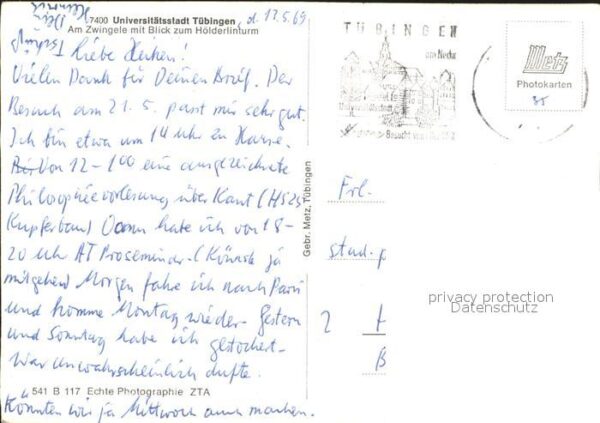 7400 Universitätsstadt Tübingen, d. 12.5.69
Am Zwingele mit Blick zum Hölderlinturm
Tschüß Dein Heinrich
Liebe Heiken!
Vielen Dank für Deinen Brief. Der
Besuch am 21.5. passt mir sehr gut.
Ich bin etwa um 14 Uhr zu Hause.
Von 12-1 00 eine ausgezeichnete
Philosophievorlesung über Kant (HS25
Kupferbau) Dann habe ich von 18-
20 Uhr AT Proseminar. (Könntest ja
mitgehen) Morgen fahre ich nach Paris
und komme Montag wieder. Gestern
und Sonntag habe ich getochert.
War unwahrscheinlich dufte.
541 B 117 Echte Photographie ZTA
Könnten wir ja Mittwoch auch machen.
Gebr. Metz, Tübingen
TÜBINGEN
am Neckar
Metz
Photokarten
35
Frl.
stud. p
2 t
B
privacy protection
Datenschutz